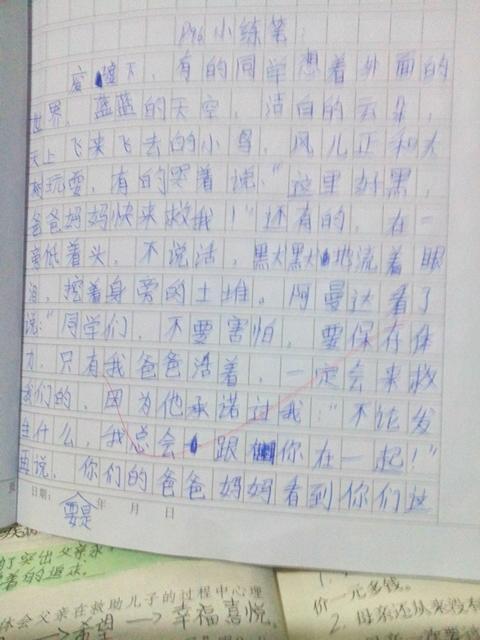 P96小练笔:
废墟下，有的同学想着外面的
世界，蓝蓝的天空，洁白的云朵，
天上飞来飞去的小鸟，风儿正和大
树玩耍，有的哭着说:"这里好黑，
爸爸妈妈快来救我！"还有的，在一
旁低着头，不说话，默默地流着眼
泪，挖着身旁的土堆。阿曼达看了
说:"同学们，不要害怕，要保存体
力，只有我爸爸活着，一定会来救
我们的，因为他承诺过我:"不论发
生什么，我总会跟你在一起！"
再说，你们的爸爸妈妈看到你们这
日期: 年 月 日
要是
突出父亲求
着的返还
体会父亲在救助儿子的过程中心理
希望→幸福喜悦
1.
价一元多钱。
2. 母亲还从来没有